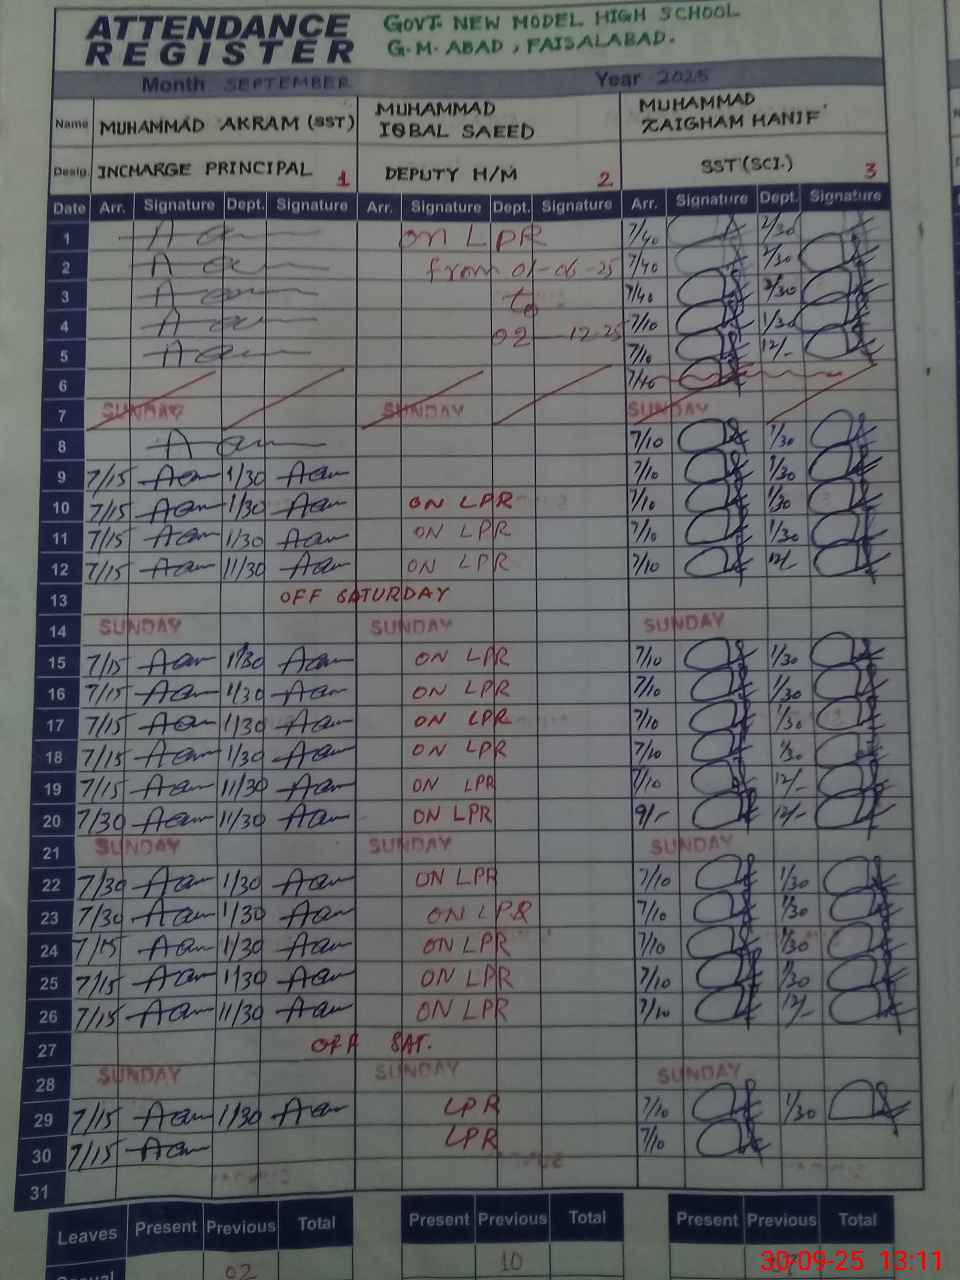 ATTENDANCE REGISTER
GOVT. NEW MODEL HIGH SCHOOL
G.M. ABAD, FAISALABAD.
Month SEPTEMBER Year 2025
Name MUHAMMAD AKRAM (SST) MUHAMMAD IQBAL SAEED MUHAMMAD ZAIGHAM HANIF
Desig. INCHARGE PRINCIPAL 1 DEPUTY H/M 2 SST (SCI.) 3
Date Arr. Signature Dept. Signature Arr. Signature Dept. Signature Arr. Signature Dept. Signature
1 ON LPR 7/40
2 from 01-06-25 7/40
3 to 7/40
4 02-12-25 7/10 1/30
5 7/10 12/-
6 7/40
7 SUNDAY SUNDAY SUNDAY
8 7/10 1/30
9 7/15 1/30 7/10 1/30
10 7/15 1/30 ON LPR 7/10 1/30
11 7/15 1/30 ON LPR 7/10 1/30
12 7/15 11/30 ON LPR 7/10 12/-
13 OFF SATURDAY
14 SUNDAY SUNDAY SUNDAY
15 7/15 1/30 ON LPR 7/10 1/30
16 7/15 1/30 ON LPR 7/10 1/30
17 7/15 1/30 ON LPR 7/10 1/30
18 7/15 1/30 ON LPR 7/10 1/30
19 7/15 11/30 ON LPR 7/10 12/-
20 7/30 11/30 ON LPR 9/- 12/-
21 SUNDAY SUNDAY SUNDAY
22 7/30 1/30 ON LPR 7/10 1/30
23 7/30 1/30 ON LPR 7/10 1/30
24 7/15 1/30 ON LPR 7/10 1/30
25 7/15 1/30 ON LPR 7/10 1/30
26 7/15 11/30 ON LPR 7/10 12/-
27 OFF SAT.
28 SUNDAY SUNDAY SUNDAY
29 7/15 1/30 LPR 7/10 1/30
30 7/15 LPR 7/10
31
Leaves Present Previous Total Present Previous Total Present Previous Total
02 10
30-09-25 13:11